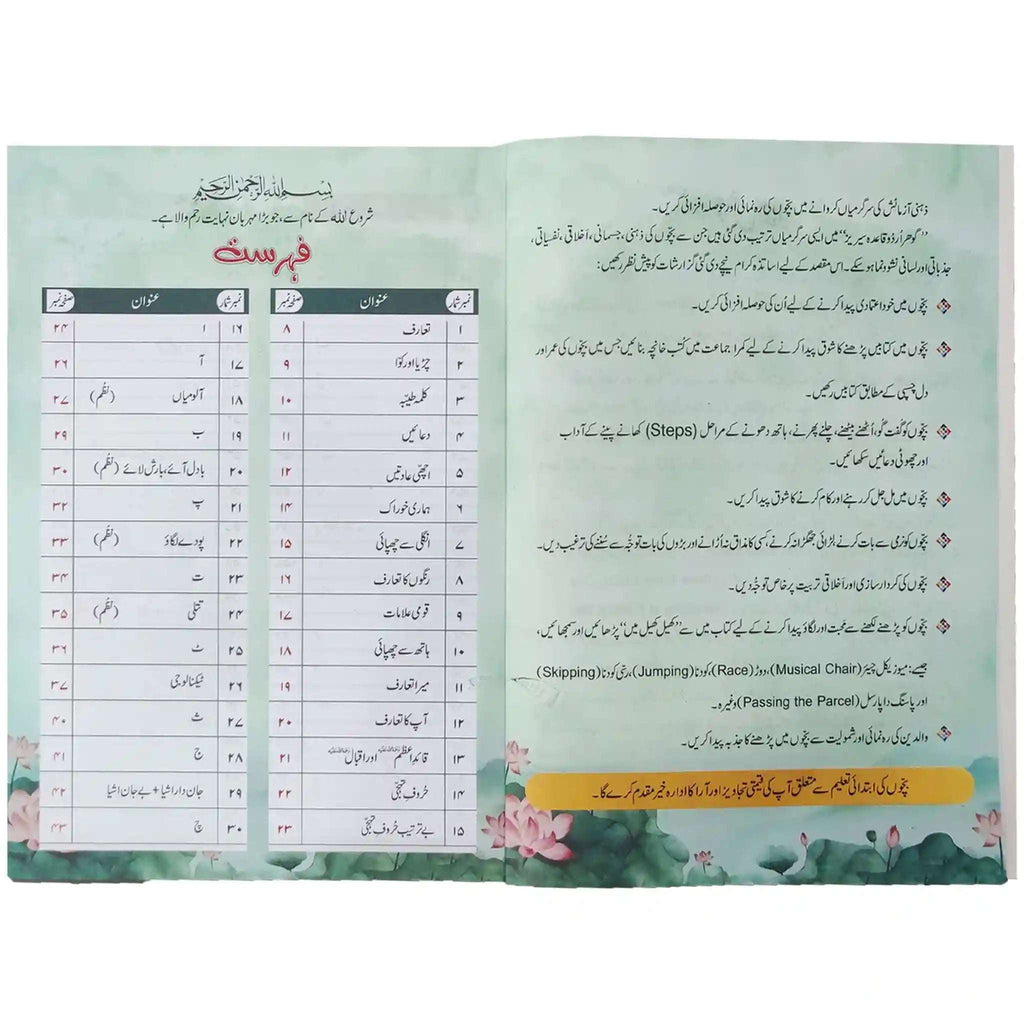 ذہنی آزمائش کی سرگرمیاں کروانے میں بچّوں کی رہ نمائی اور حوصلہ افزائی کریں۔
”گوھر اُردُو قاعدہ سیریز“ میں ایسی سرگرمیاں ترتیب دی گئی ہیں جن سے بچّوں کی ذہنی، جسمانی، اَخلاقی، نفسیاتی،
جذباتی اور لسانی نشوونما ہو سکے۔ اس مقصد کے لیے اساتذہ کرام نیچے دی گئی گزارشات کو پیش نظر رکھیں:
بچّوں میں خود اعتمادی پیدا کرنے کے لیے اُن کی حوصلہ افزائی کریں۔
بچّوں میں کتابیں پڑھنے کا شوق پیدا کرنے کے لیے کمرا جماعت میں کُتب خانچہ بنائیں جس میں بچّوں کی عمر اور
دل چسپی کے مطابق کتابیں رکھیں۔
بچّوں کو گفت گُو، اُٹھنے بیٹھنے، چلنے پھرنے، ہاتھ دھونے کے مراحل (Steps) کھانے پینے کے آداب
اور چھوٹی دعائیں سکھائیں۔
بچّوں میں مل جل کر رہنے اور کام کرنے کا شوق پیدا کریں۔
بچّوں کو نرمی سے بات کرنے، لڑائی جھگڑا نہ کرنے، کسی کا مذاق نہ اُڑانے اور بڑوں کی بات توجُّہ سے سُننے کی ترغیب دیں۔
بچّوں کی کردار سازی اور اَخلاقی تربیت پر خاص توجُّہ دیں۔
بچّوں کو پڑھنے لکھنے سے محبت اور لگاؤ پیدا کرنے کے لیے کتاب میں سے ”کھیل کھیل میں“ پڑھائیں اور سمجھائیں،
جیسے: میوزیکل چیئر (Musical Chair)، دوڑ (Race)، کودنا (Jumping)، رسّی کودنا (Skipping)
اور پاسنگ دا پارسل (Passing the Parcel) وغیرہ۔
والدین کی رہ نمائی اور شمولیت سے بچّوں میں پڑھنے کا جذبہ پیدا کریں۔
بچّوں کی ابتدائی تعلیم سے متعلق آپ کی قیمتی تجاویز اور آرا کا ادارہ خیر مقدم کرے گا۔
بِسْمِ اللهِ الرَّحْمٰنِ الرَّحِيْمِ
شروع اللہ کے نام سے، جو بڑا مہربان نہایت رحم والا ہے۔
فہرست
نمبر شمار عنوان صفحہ نمبر
۱ تعارف ۸
۲ چڑیا اور کوّا ۹
۳ کلمہ طیّبہ ۱۰
۴ دعائیں ۱۱
۵ اچھّی عادتیں ۱۲
۶ ہماری خوراک ۱۴
۷ انگلی سے چھپائی ۱۵
۸ رنگوں کا تعارف ۱۶
۹ قومی علامات ۱۷
۱۰ ہاتھ سے چھپائی ۱۸
۱۱ میرا تعارف ۱۹
۱۲ آپ کا تعارف ۲۰
۱۳ قائدِ اعظم اور اقبال ۲۱
۱۴ حُروفِ تہجّی ۲۲
۱۵ بے ترتیب حُروفِ تہجّی ۲۳
نمبر شمار عنوان صفحہ نمبر
۱۶ ا ۲۴
۱۷ آ ۲۶
۱۸ آلو میاں (نظم) ۲۷
۱۹ ب ۲۹
۲۰ بادل آئے، بارش لائے (نظم) ۳۰
۲۱ پ ۳۲
۲۲ پودے لگاؤ (نظم) ۳۳
۲۳ ت ۳۴
۲۴ تتلی (نظم) ۳۵
۲۵ ٹ ۳۶
۲۶ ٹیکنالوجی ۳۷
۲۷ ث ۴۰
۲۸ ج ۴۱
۲۹ جان دار اشیا + بے جان اشیا ۴۲
۳۰ چ ۴۳